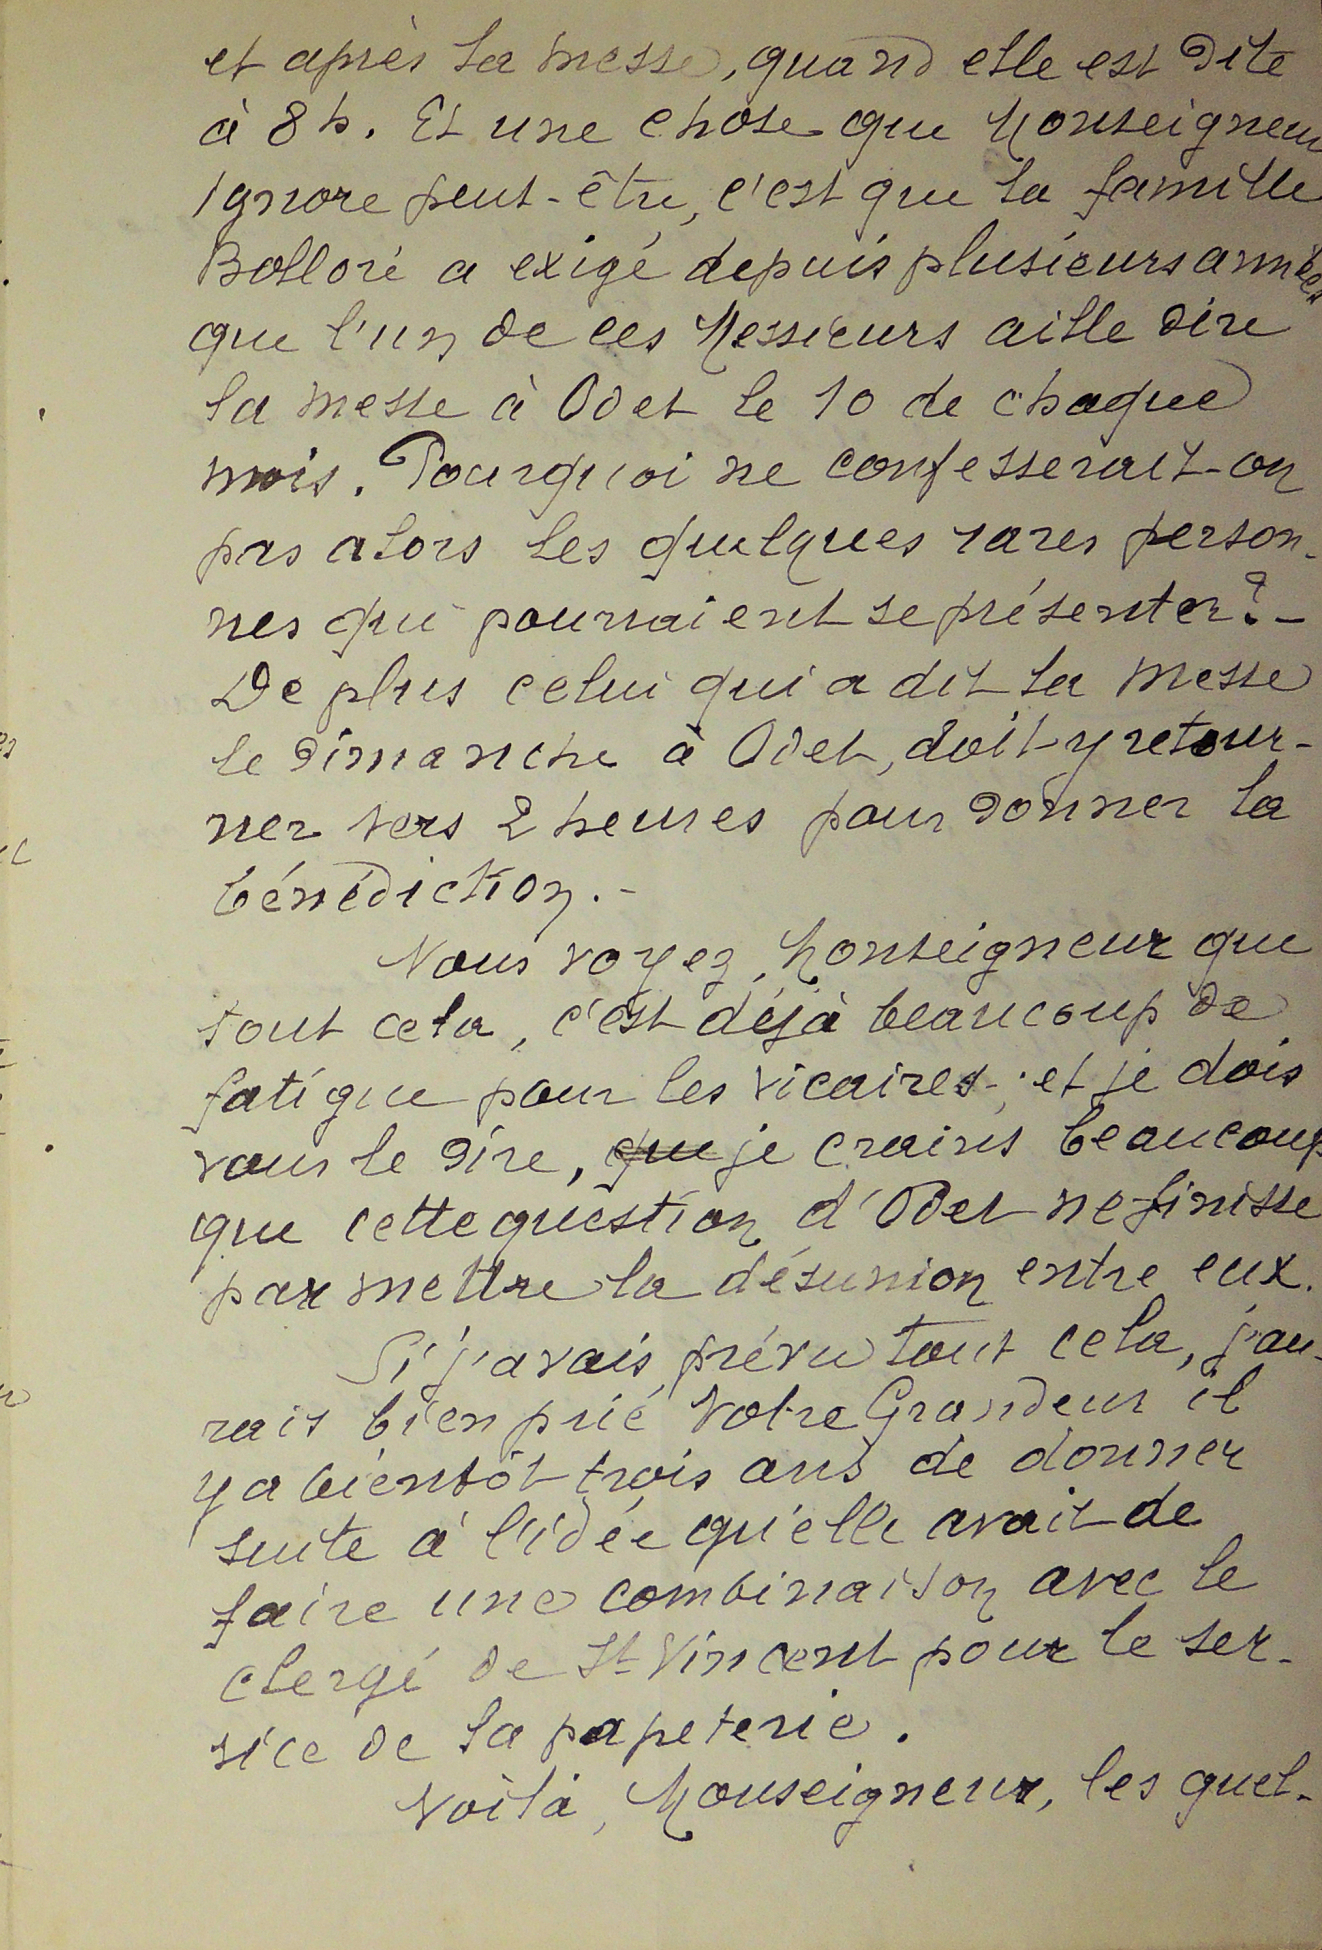 et après la messe, quand elle est dite
à 8 h. Et une chose que Monseigneur
ignore peut-être, c'est que la famille
Bolloré a exigé depuis plusieurs années
que l'un de ces Messieurs aille dire
la messe à Odet le 10 de chaque
mois. Pourquoi ne confesserait-on
pas alors les quelques rares person-
nes qui pourraient se présenter? -
De plus celui qui a dit la messe
le dimanche à Odet, doit y retour-
ner vers 2 heures pour donner la
bénédiction. -
Vous voyez, Monseigneur que
tout cela, c'est déjà beaucoup de
fatigue pour les vicaires-; et je dois
vous le dire, que je crains beaucoup
que cette question d'Odet ne finisse
par mettre la désunion entre eux.
Si j'avais prévu tout cela, j'au-
rais bien prié Votre Grandeur il
y a bientôt trois ans de donner
suite à l'idée qu'elle avait de
faire une combinaison avec le
clergé de St Vincent pour le ser-
vice de la papeterie.
Voilà, Monseigneur, les quel-